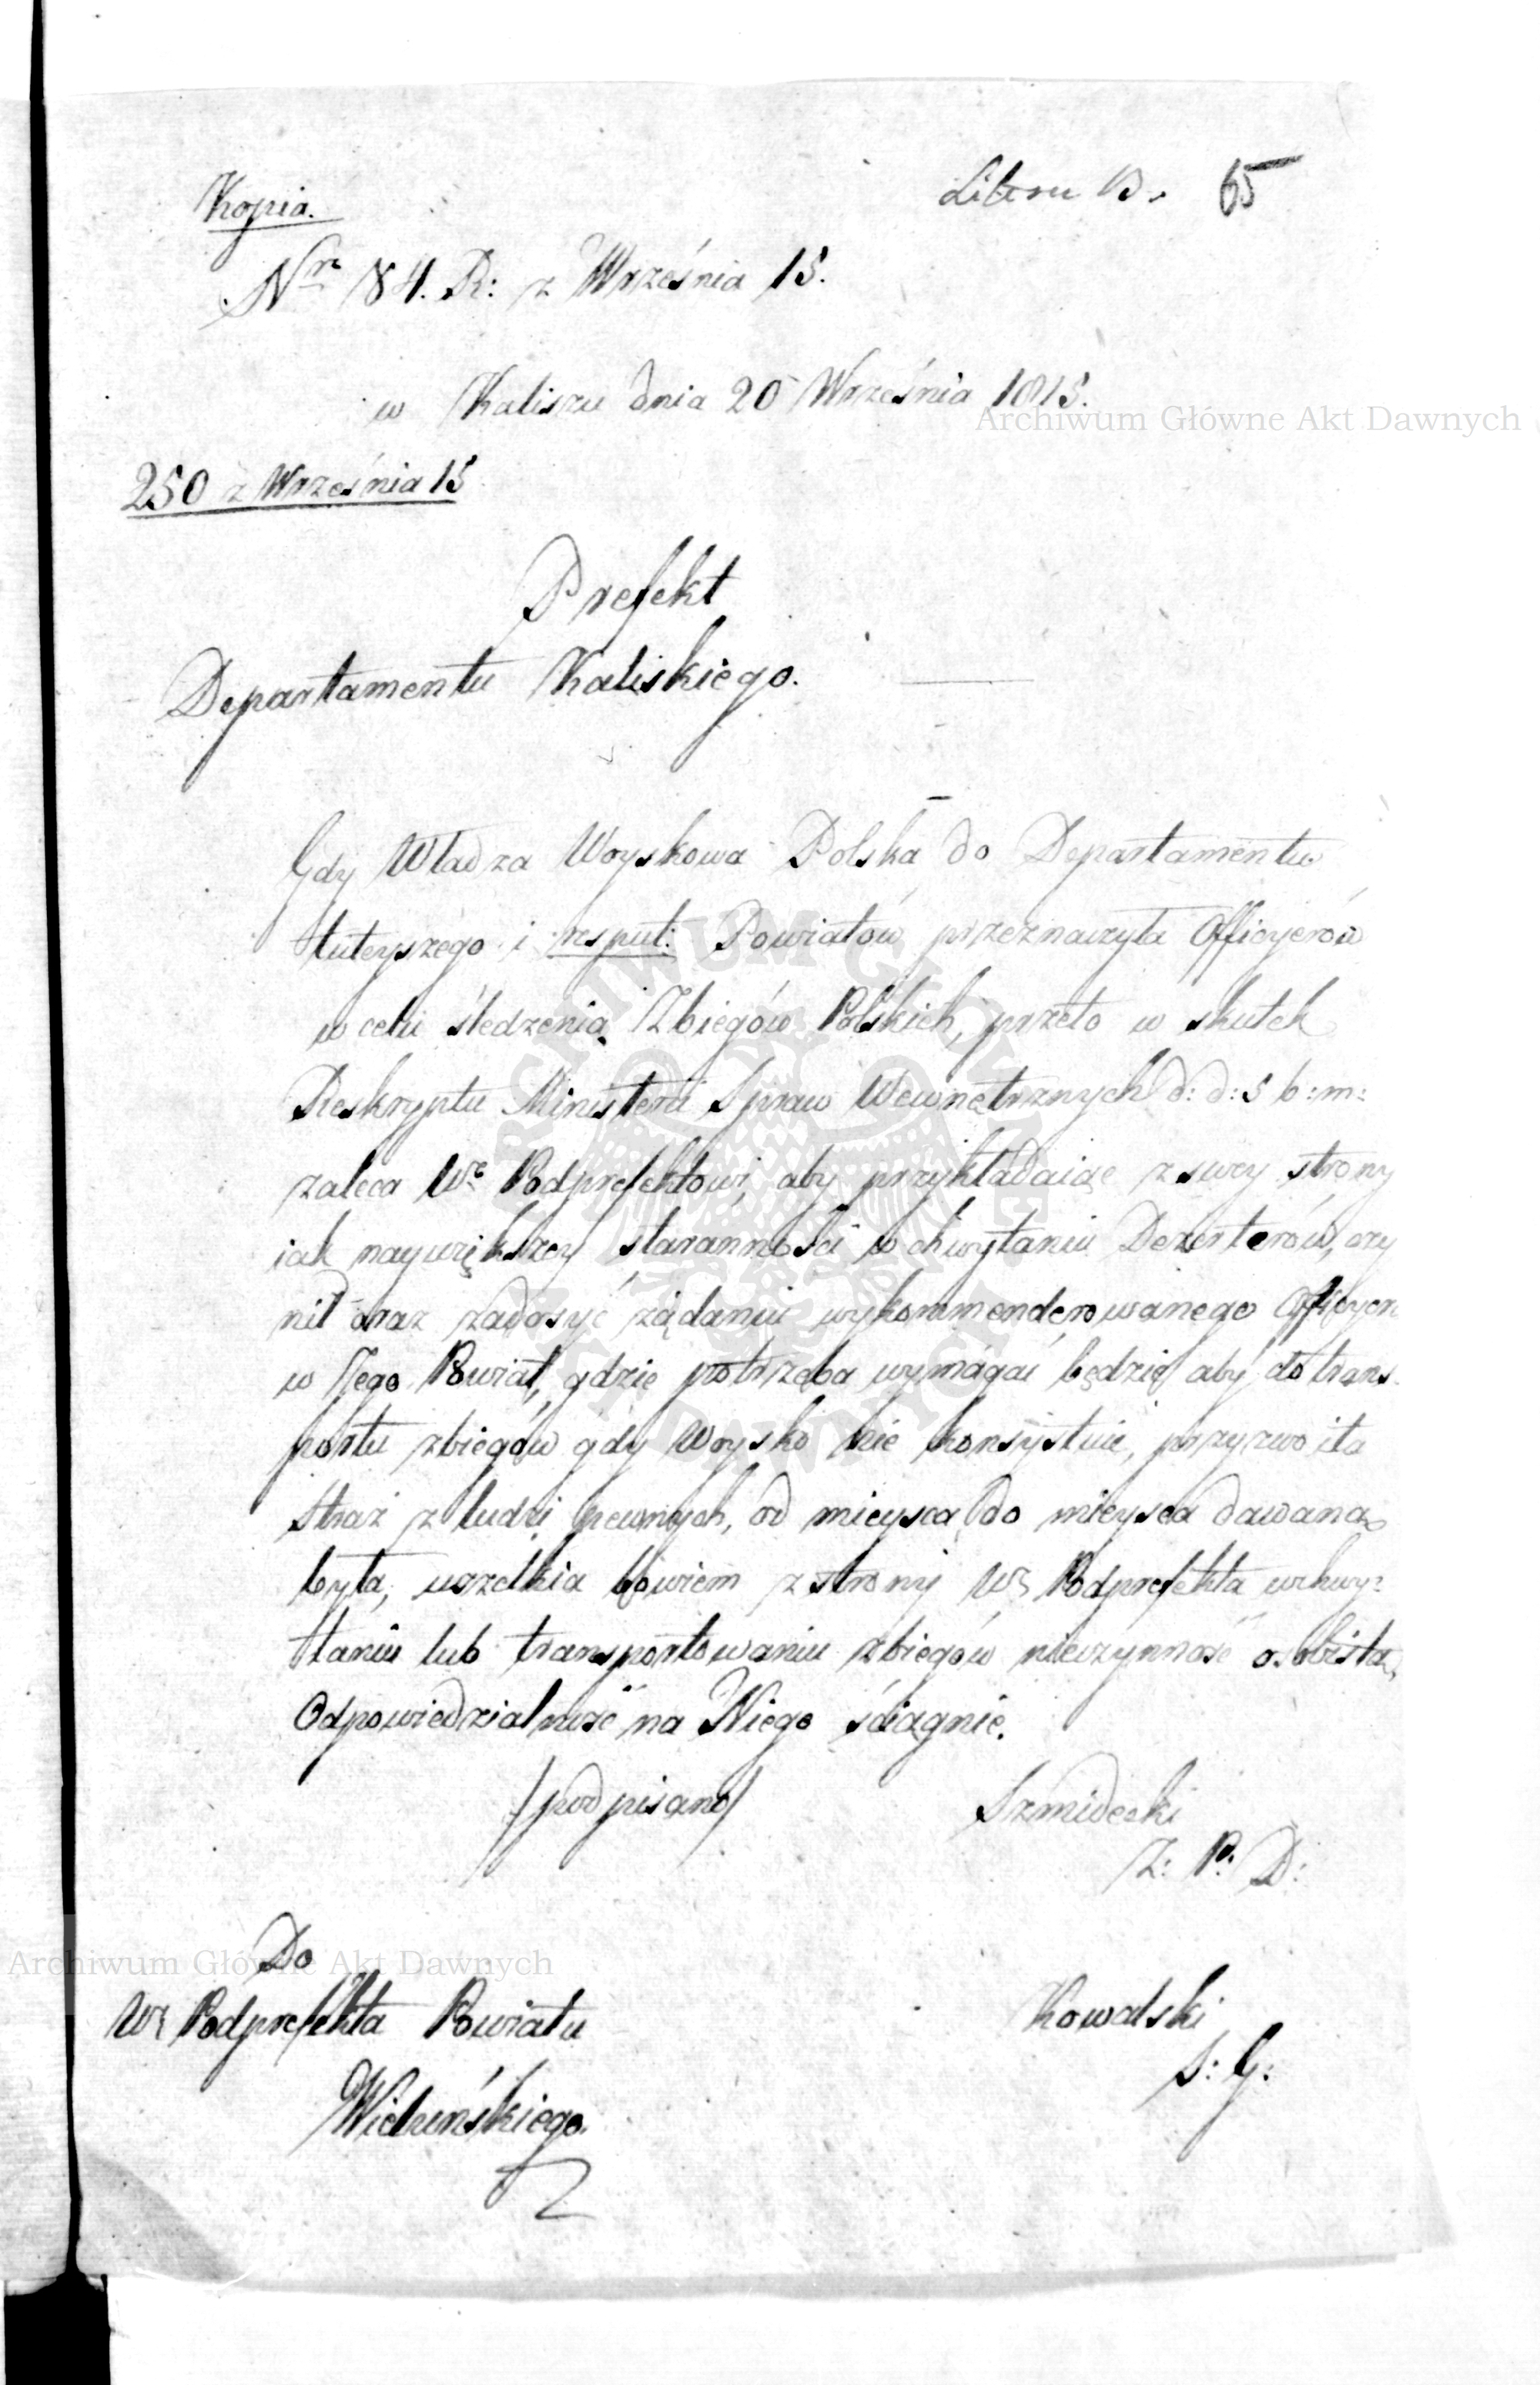 Kopia.
Litera B. 65
Nr 84. R: z Września 15.
w Kaliszu dnia 20 Września 1815.
Archiwum Główne Akt Dawnych
250 z Września 15
Prefekt
Departamentu Kaliskiego.
Gdy Władza Woyskowa Polska do Departamentu
tuteyszego i respect: Powiatów przeznaczyła Officyerów
w celu śledzenia Zbiegów Polskich, przeto w skutek
Reskryptu Ministerii Spraw Wewnętrznych d: d: 5 b: m:
zaleca We Podprefektowi, aby przykładaiąc z swey strony
iak naywiększey staranności w chwytaniu Dezerterów, czy
nił oraz zadosyć żądaniu wykommenderowanego Officyera
w Jego Powiat, gdzie potrzeba wymagać będzie aby do trans-
portu zbiegów gdy Woysko nie konsystuie, przyzwoita
straż z ludzi pewnych, od mieysca do mieysca dawana
była, wszelka bowiem z strony W. Podprefekta w chwy-
taniu lub transportowaniu zbiegów nieczynność osobistą
Odpowiedzialność na Niego ściągnie.
/podpisano/ Szmidecki
Z: P: D:
Do
Archiwum Główne Akt Dawnych
W. Podprefekta Powiatu
Wieluńskiego.
Kowalski
S: G:
ARCHIWUM GŁÓWNE AKT DAWNYCH